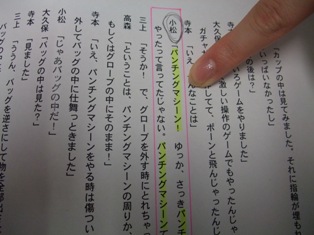 「カップの中は見てみました。それに指輪が埋もれ
いっぱいなかったし」
の後は?」
いろゲームをやりました」
激しい操作のゲームでもやったんじゃ
ガチャ
してて、ポーンと飛んじゃったんじ
寺本「いえ
んなことは」
小松「パンチングマシーン! ゆっか、さっきパンチ
やったって言ってたじゃない。パンチングマシーンで
三上「そうか! で、グローブを外す時にとれちゃっ
高森「ということは、パンチングマシーンの周りか、
もしくはグローブの中にそのまま!」
寺本「いえ、パンチングマシーンをやる時は傷つい
外してバッグの中に仕舞っときました」
小松「じゃあバッグの中だ!」
大久保「バッグの中は見た?」
寺本「見ました」
三上「ううん、バッグを逆さにして物を全部出